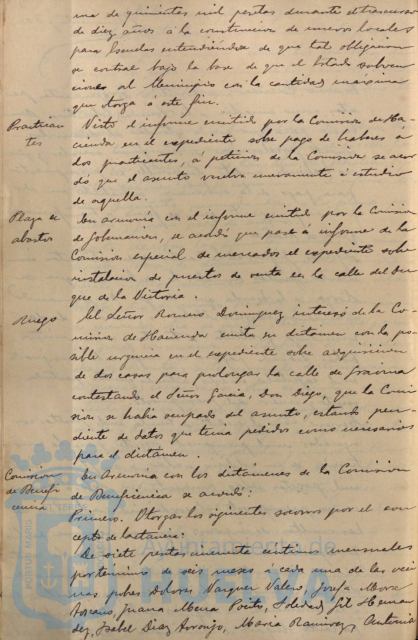 una de quinientas mil pesetas durante el transcurso
de diez años a la construcción de nuevos locales
para Escuelas entendiéndose de que tal obligación
se contrae bajo la base de que el Estado subven
cione al Municipio con la cantidad máxima
que otorga a este fin.
Practican
tes
Visto el informe emitido por la Comisión de Ha
cienda en el expediente sobre pago de haberes á
dos practicantes, a petición de la Comisión se acor
dó que el asunto vuelva nuevamente á estudio
de aquella.
Plaza de
abastos
En armonía con el informe emitido por la Comisión
de Gobernación, se acordó que pase á informe de la
Comisión especial de mercados el expediente sobre
instalación de puestos de venta en la calle del Du
que de la Victoria.
Ruego
El Señor Romero Dominguez interesó de la Co
misión de Hacienda emita su dictamen con la po
sible urgencia en el expediente sobre adquisición
de dos casas para prolongar la calle de
contestando el Señor García, Don Diego, que la Comi
sión se había ocupado del asunto, estando pen
diente de datos que tenía pedidos como necesarios
para el dictamen.
Comisión
de Benefi
cencia
En Armonía con los dictámenes de la Comisión
de Beneficencia se acordó:
Primero. Otorgar los siguientes socorros por el con
cepto de lactancia:
De siete pesetas cincuenta centimos mensuales
por término de seis meses á cada una de las veci
nas pobres Dolores Vazquez Valero, Josefa Mora
Juana Mena Poito, Soledad Gil Hernan
dez, Isabel Diaz Arroyo, Maria Ramirez, Antonia
PORTUS MARIS